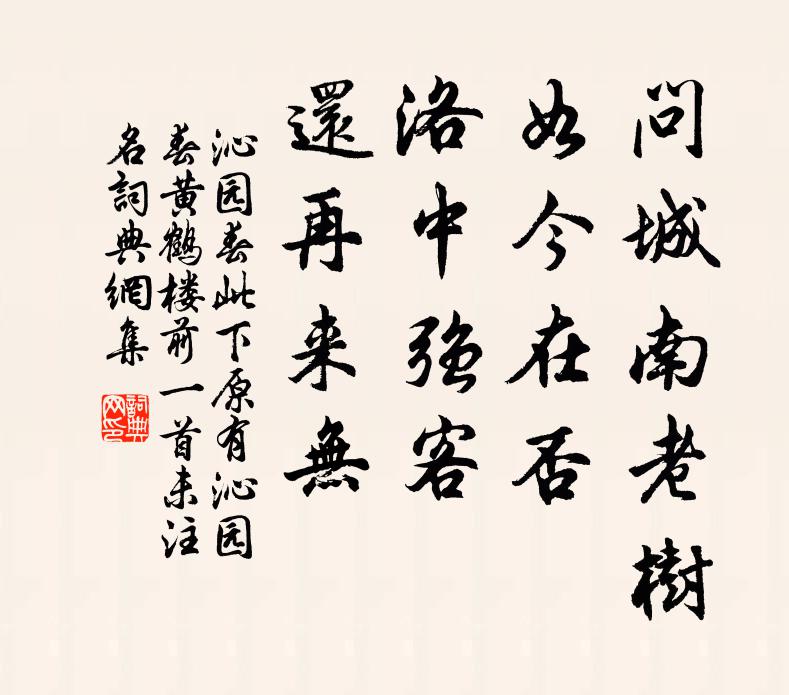 問城南老樹
如今在否
洛中強客
還再来無
沁园春此下原有沁园
春黄鹤楼前一首未注
名詞典網集
詞典网印